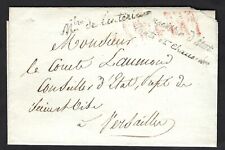 Mtre de l'intérieur
Monsieur
le Comte Laumond
Conseiller d'Etat, Préfet de
Seine et Oise
à Versailles